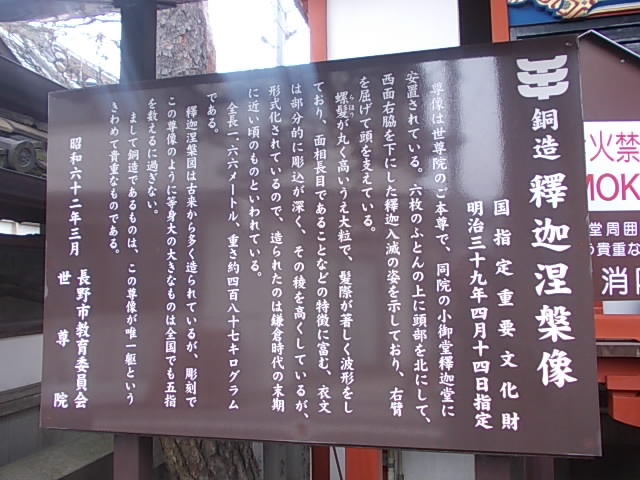 銅造 釋迦涅槃像
国指定重要文化財
明治三十九年四月十四日指定
尊像は世尊院のご本尊で、同院の小御堂釋迦堂に
安置されている。六枚のふとんの上に頭部を北にして、
西面右脇を下にした釋迦入滅の姿を示しており、右臂
を屈げて頭を支えている。
螺髪が丸く高いうえ大粒で、髪際が著しく波形をし
らほう
ており、面相長目であることなどの特徴に富む、衣文
は部分的に彫込が深く、その稜を高くしているが、
形式化されているので、造られたのは鎌倉時代の末期
に近い頃のものといわれている。
全長一、六六メートル、重さ約四百八十七キログラム
である。
釋迦涅槃図は古来から多く造られているが、彫刻で
この尊像のように等身大の大きなものは全国でも五指
を数えるに過ぎない。
まして銅造であるものは、この尊像が唯一躯という
きわめて貴重なものである。
昭和六十二年三月
長野市教育委員会
世尊院
火禁
MOK
堂周囲
う貴重な
消